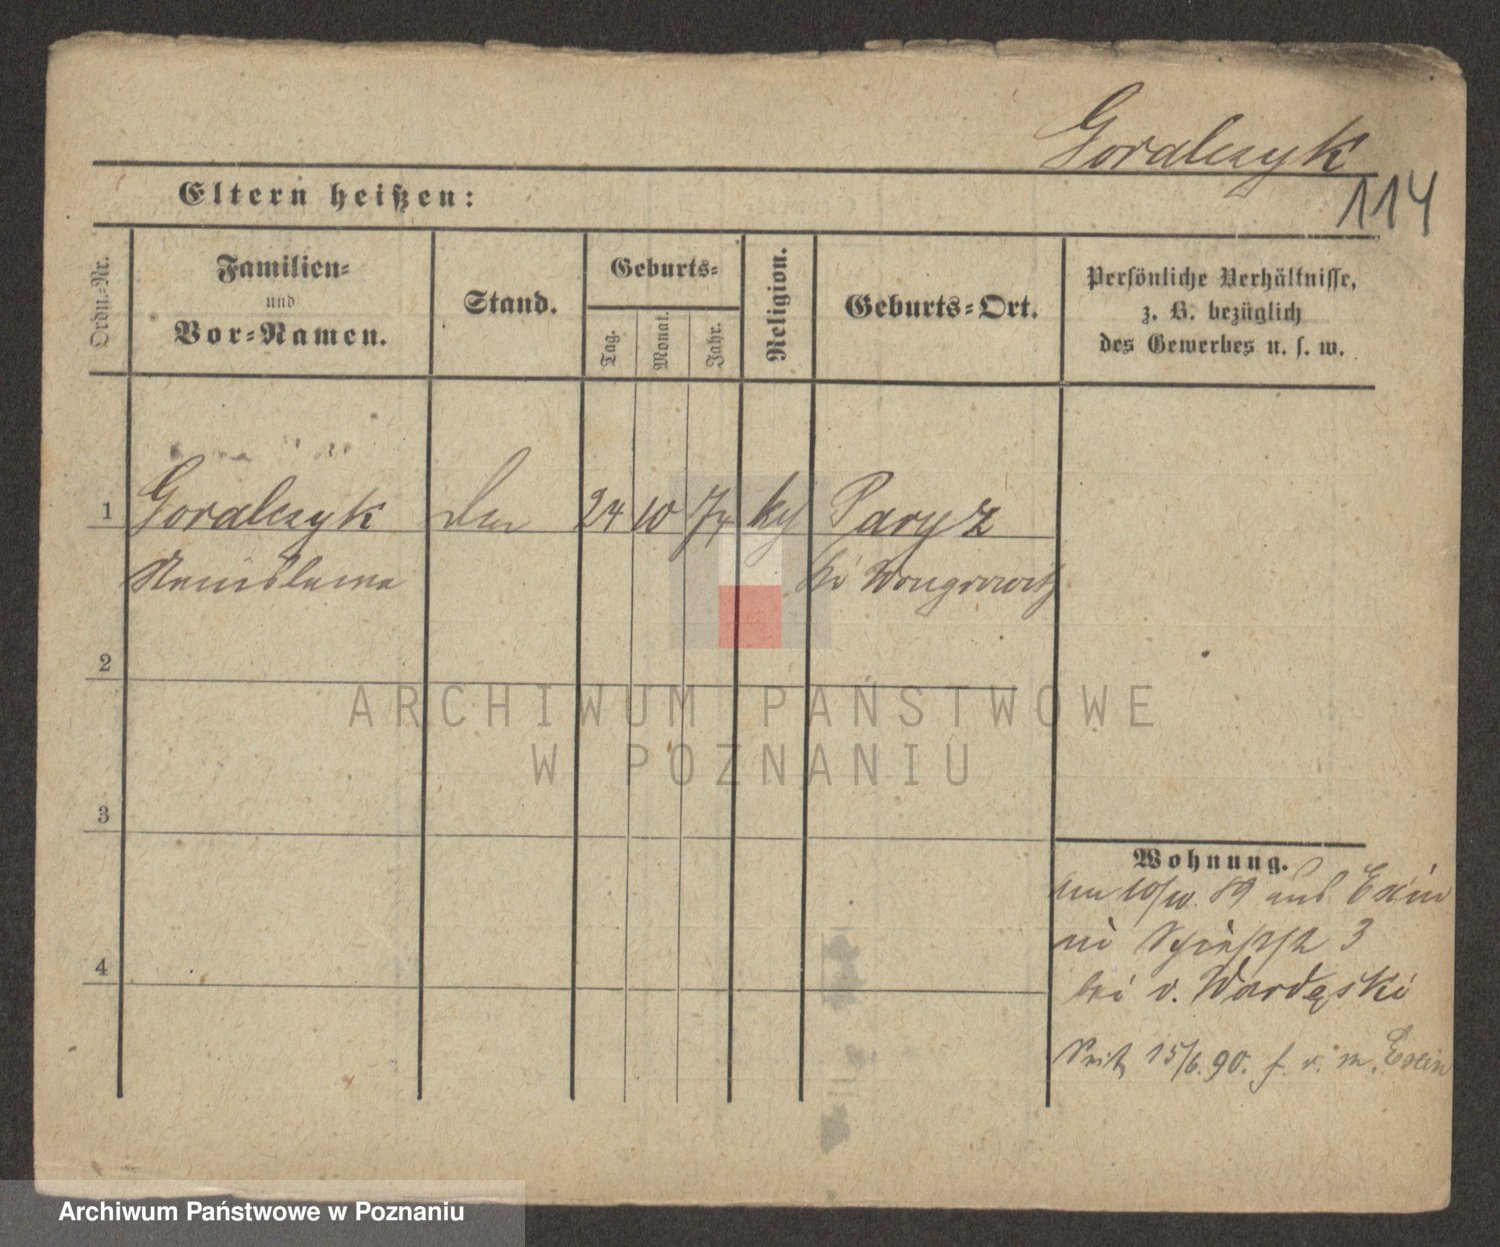 Goralczyk
114
Eltern heißen:
Ordn.-Nr.
Familien-
und
Vor-Namen.
Stand.
Geburts-
Tag.
Monat.
Jahr.
Religion.
Geburts-Ort.
Persönliche Verhältnisse,
z. B. bezüglich
des Gewerbes u. s. w.
1 Goralczyk 24 10 74 Paryz
Wongrowitz
2
3
4
ARCHIWUM PAŃSTWOWE
W POZNANIU
Wohnung.
10/10. 89 aus Exin
3
bei v. Wardęski
Seit 15/6. 90. f. v. m. Exin
Archiwum Państwowe w Poznaniu